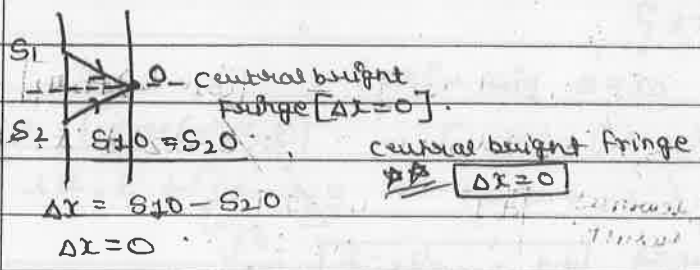 S1
O - central bright
fringe [Δx=0].
S2 S1O = S2O
central bright fringe
Δx = 0
Δx = S1O - S2O
Δx = 0